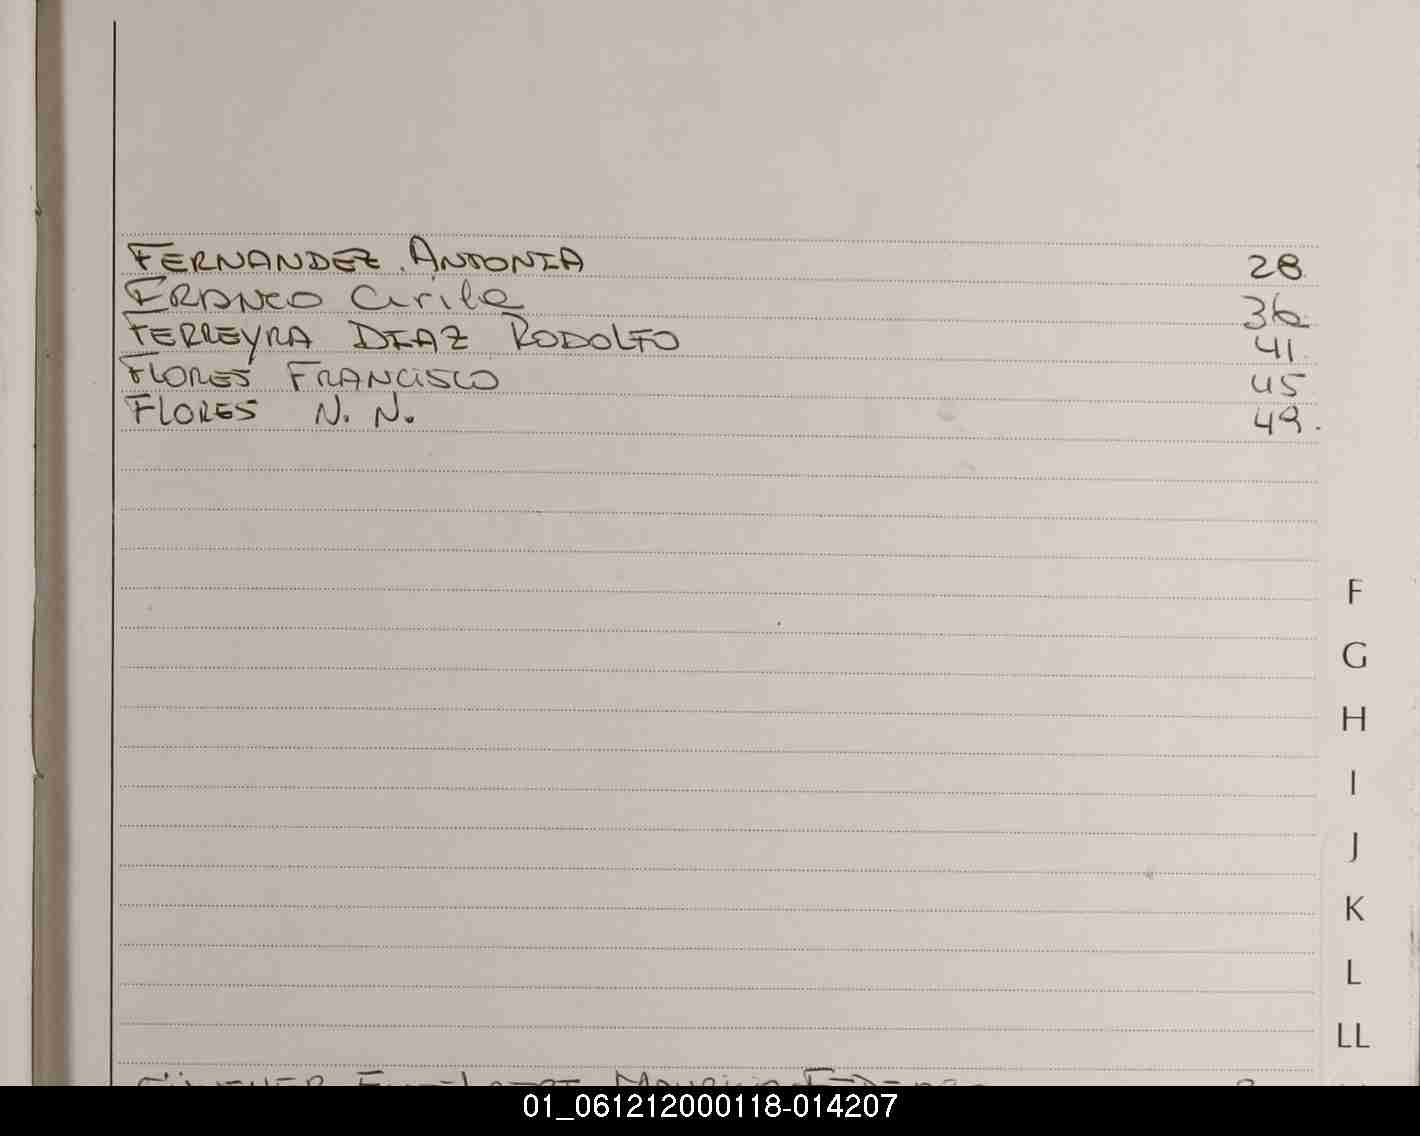 FERNANDEZ ANTONIA 28
FRANCO Cirila 36
FERREYRA DIAZ RODOLFO 41
FLORES FRANCISCO 45
FLORES N. N. 49.
F
G
H
I
J
K
L
LL
01_061212000118-014207